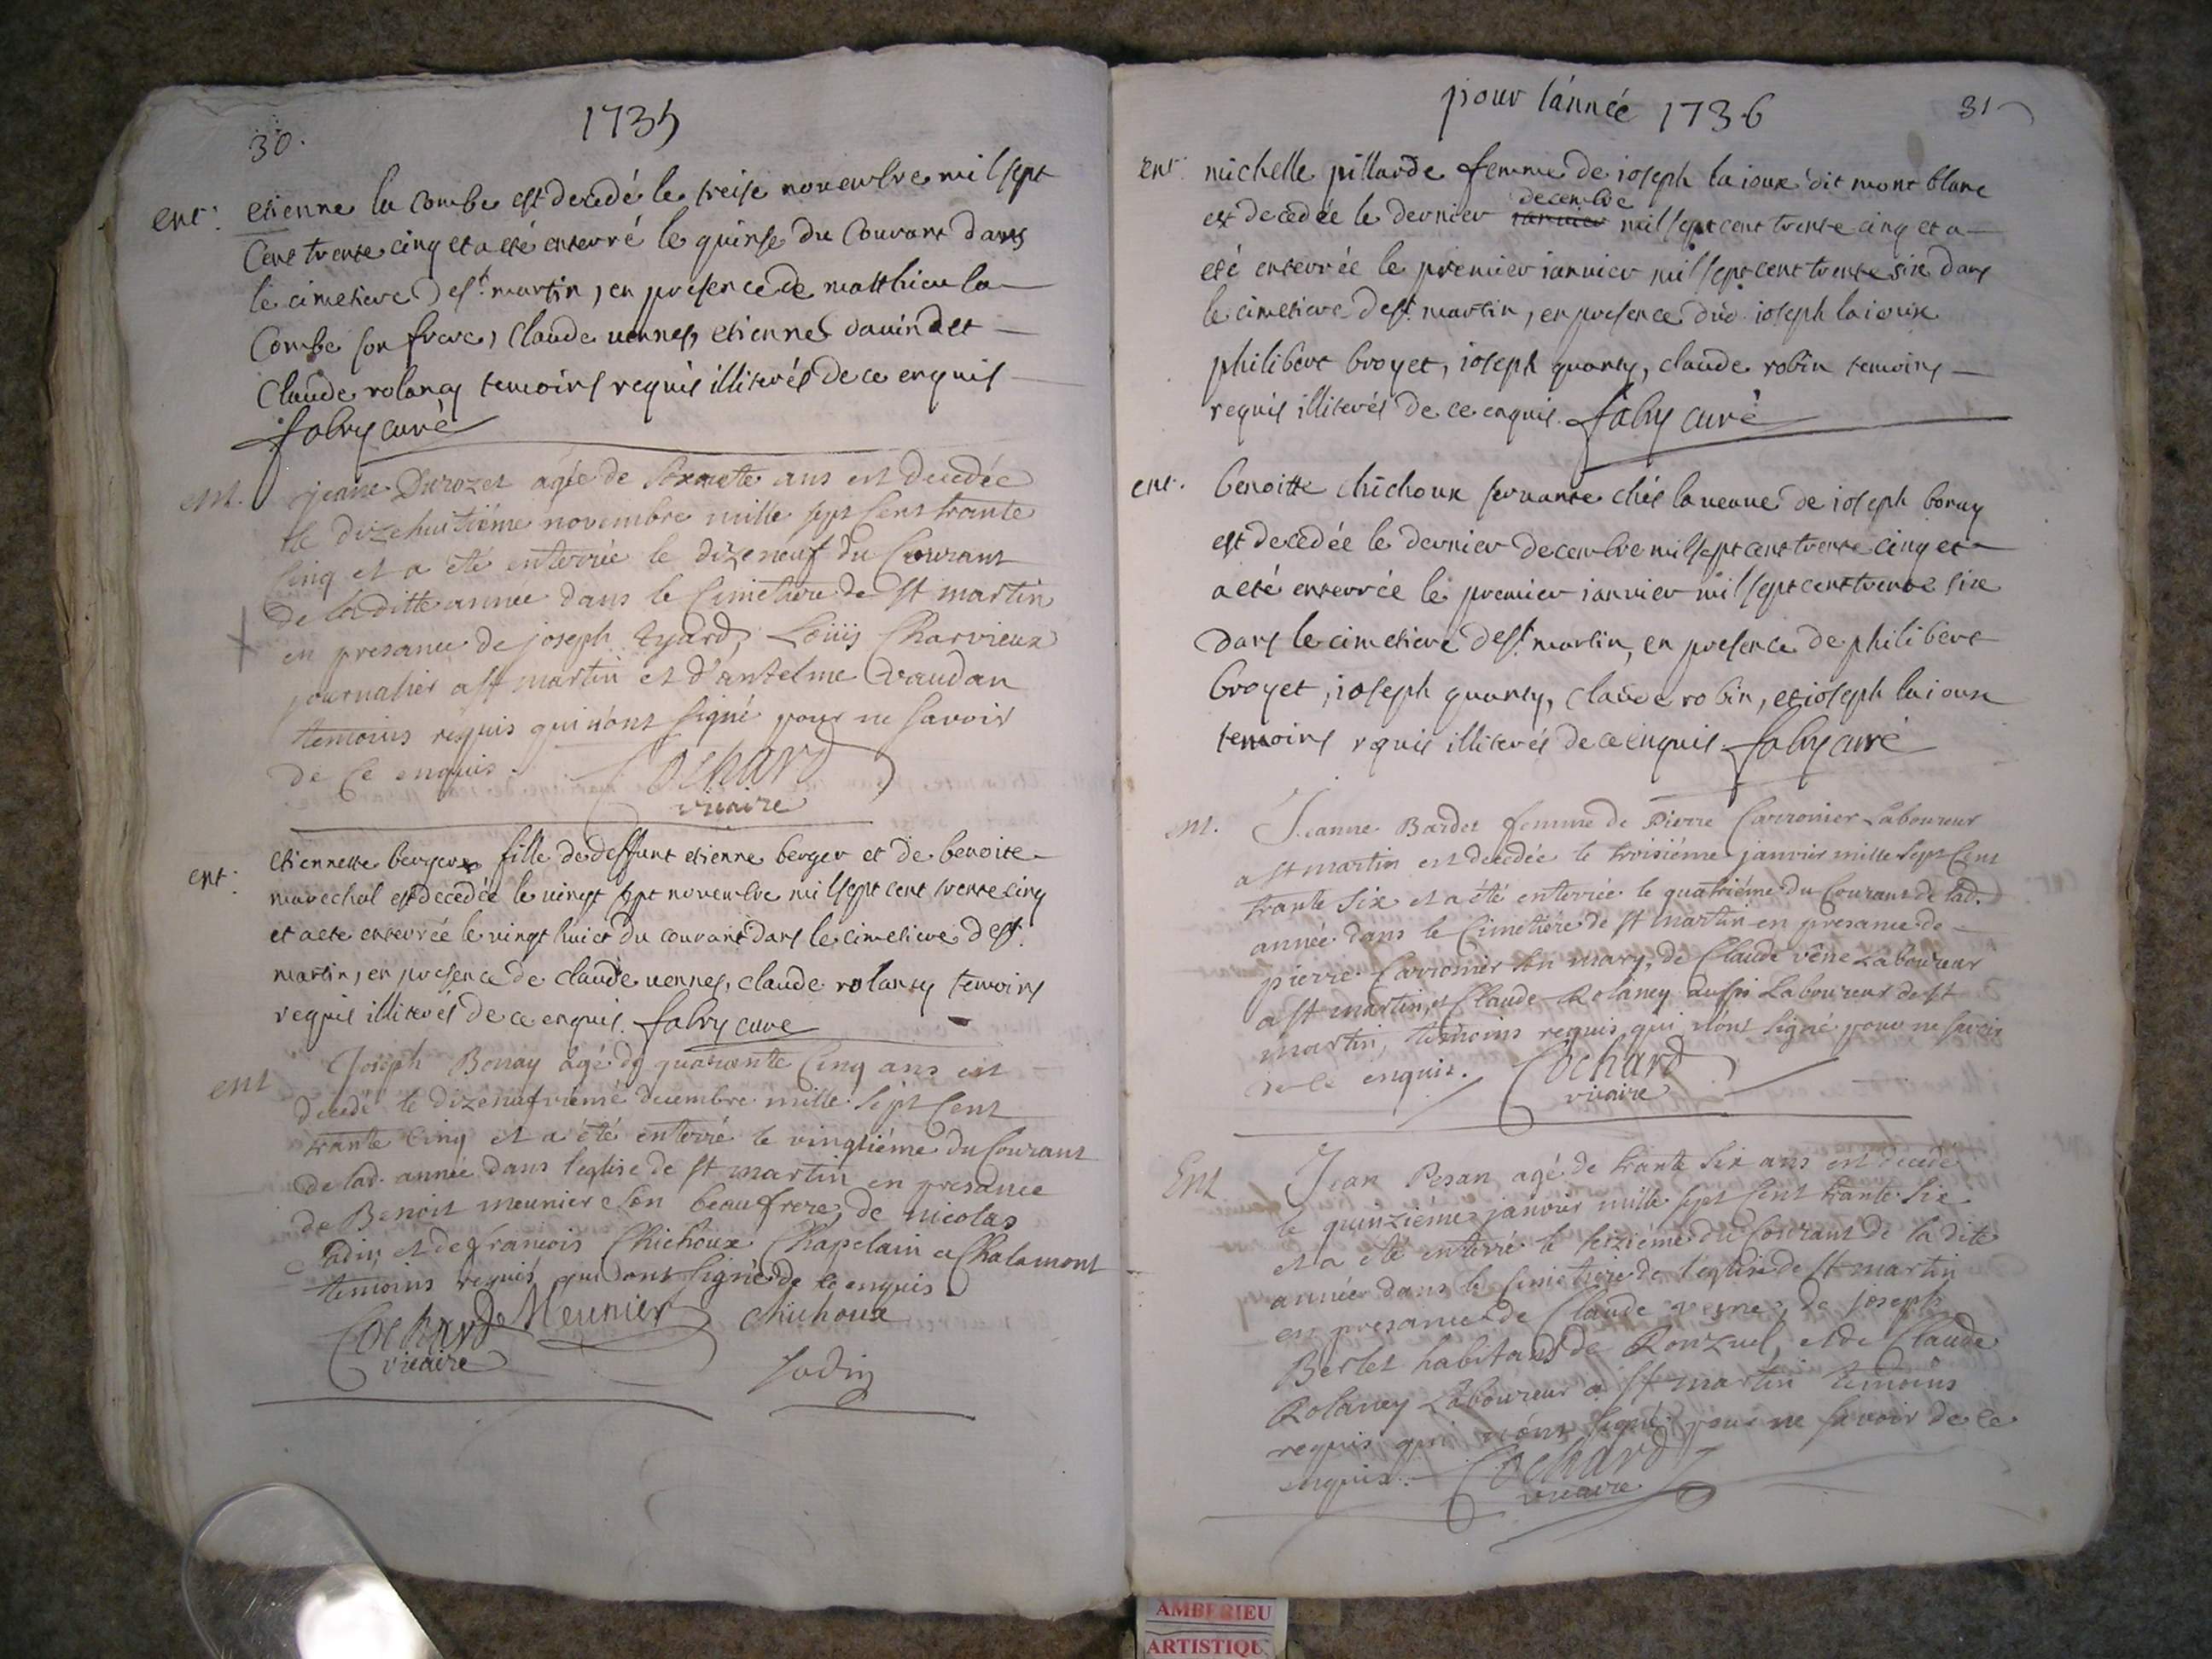 30.
1735
ent: etienne la Combe est decedé le treise novembre mil sept
Cent trente cinq et a eté enterré le quinse du Courant dans
le cimetiere de st. martin, en presence de matthieu la
Combe son frere, Claude vennes, etienne dauind et
Claude rolancy temoins requis illiterés de ce enquis
fabry curé
ent. jeane Durozet agée de soixante ans est decedée
le dizehuitiéme novembre mille sept Cent trante
Cinq et a eté enterrée le dizeneuf du Courant
de laditte année dans le Cimetiere de st martin
en presance de joseph Tyard, Loüis Charvieux
journalier a st martin et d'antelme vaudan
temoins requis qui n'ont signé pour ne savoir
de Ce enquis. Cochard
vicaire
ent: etiennette berger fille de deffunt etienne berger et de benoite
marechal est decedée le vingt sept novembre mil sept cent trente cinq
et a ete enterrée le vingt huict du courant dans le cimetiere de st.
martin, en presence de claude vennes, claude rolancy temoins
requis illiterés de ce enquis. fabry curé
ent Joseph Bonay agé de quarante Cinq ans est
decedé le dizeneufviemé decembre mille Sept Cent
trante Cinq et a été enterré le vingtiéme du Courant
de lad. année dans l'eglise de st martin en presance
de Benoit meunier son beaufrere, de nicolas
Jadin, et de francois Chichoux Chapelain a Chalamont
temoins requis qui ont signé de ce enquis
Cochard Meunier chichoux
vicaire
Jadin
pour l'année 1736
31
ent: michelle pillarde femme de ioseph laioux dit mont blanc
decembre
est decedée le dernier ianvier mil sept cent trente cinq et a
eté enterrée le premier ianvier mil sept cent trente six dans
le cimetiere de st. martin, en presence dud. ioseph laioux
philibert broyet, ioseph quanty, claude robin temoins
requis illiterés de ce enquis. fabry curé
ent. benoitte chichoux servante chés la veuve de ioseph bonay
est decedée le dernier decembre mil sept cent trente cinq et
a eté enterrée le premier ianvier mil sept cent trente six
dans le cimetiere de st. martin, en presence de philibert
broyet, ioseph quanty, claude robin, et ioseph laioux
temoins rquis illiterés de ce enquis. fabry curé
ent. Jeanne Bardet femme de Pierre Carronier Laboureur
a st martin est decedée le troisiéme janvier mille Sept Cent
trante Six et a été enterrée le quatriéme du Courant de lad.
année dans le Cimetiere de st martin en presance de
pierre Carronier son mary, de Claude vêne Laboureur
a st martin, et Claude Rolancy aussi Laboureur de st
martin, temoins requis qui n'ont signé pour ne savoir
de Ce enquis. Cochard
vicaire
Ent Jean Pesan agé de trante Six ans est decedé
le quinziéme janvier mille sept Cent trante Six
et a été enterré le seiziéme du Courant de la dite
année dans le Cimetiere de l'eglise de st martin
en presance de Claude vesne, de joseph
Berlet habitant de Ronzuel, et de Claude
Rolancy Laboureur a st martin temoins
requis qui n'ont signé pour ne savoir de ce
enquis. Cochard
vicaire
AMBERIEU
ARTISTIQU